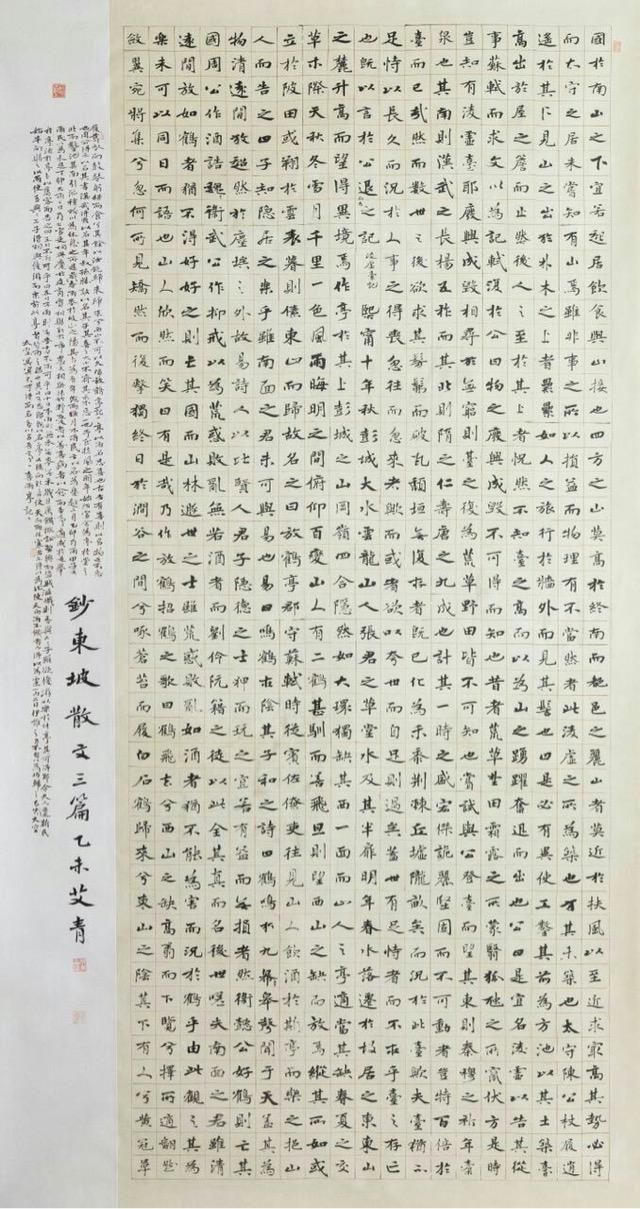 國於南山之下宜若起居飲食與山接也四方之山莫高於終南而都邑之麗山者莫近於扶風以至近求最高其勢必得
而太守之居未嘗知有山焉雖非事之所以損益而物理有不當然者此凌虛之所為築也方其未築也太守陳公杖履逍
遙於其下見山之出於林木之上者纍纍如人之旅行於牆外而見其髻也曰是必有異使工鑿其前為方池以其土築臺
高出於屋之簷而止然後人之至於其上者怳然不知臺之高而以為山之踴躍奮迅而出也公曰是宜名凌虛以告其從
事蘇軾而求文以為記軾復於公曰物之廢興成毀不可得而知也昔者荒草野田霜露之所蒙翳狐虺之所竄伏方是時
豈知有凌虛臺耶廢興成毀相尋於無窮則臺之復為荒草野田皆不可知也嘗試與公登臺而望其東則秦穆之祈年橐
泉也其南則漢武之長楊五柞而其北則隋之仁壽唐之九成也計其一時之盛宏傑詭麗堅固而不可動者豈特百倍於
臺而已哉然而數世之後欲求其髣髴而破瓦頹垣無復存者既已化為禾黍荊棘丘墟隴畝矣而況於此臺歟夫臺猶不
足恃以長久而況於人事之得喪忽往而忽來者歟而或者欲以夸世而自足則過矣蓋世有足恃者而不在乎臺之存亡
也既以言於公退而為之記 凌虛臺記 熙寧十年秋彭城大水雲龍山人張君之草堂水及其半扉明年春水落遷於故居之東東山
之麓升高而望得異境焉作亭於其上彭城之山岡嶺四合隱然如大環獨缺其西一面而山人之亭適當其缺春夏之交
草木際天秋冬雪月千里一色風雨晦明之間俯仰百變山人有二鶴甚馴而善飛旦則望西山之缺而放焉縱其所如或
立於陂田或翔於雲表暮則傃東山而歸故名之曰放鶴亭郡守蘇軾時從賓佐僚吏往見山人飲酒於斯亭而樂之挹山
人而告之曰子知隱居之樂乎雖南面之君未可與易也易曰鳴鶴在陰其子和之詩曰鶴鳴于九皋聲聞于天蓋其為
物清遠閒放超然於塵埃之外故易詩人以比賢人君子隱德之士狎而玩之宜若有益而無損者然衛懿公好鶴則亡其
國周公作酒誥衛武公作抑戒以為荒惑敗亂無若酒者而劉伶阮籍之徒以此全其真而名後世嗟夫南面之君雖清
遠閒放如鶴者猶不得好好之則亡其國而山林遁世之士雖荒惑敗亂如酒者猶不能為害而況於鶴乎由此觀之其為
樂未可以同日而語也山人欣然而笑曰有是哉乃作放鶴招鶴之歌曰鶴飛去兮西山之缺高翔而下覽兮擇所適翻然
斂翼宛將集兮忽何所見矯然而復擊獨終日於澗谷之間兮啄蒼苔而履白石鶴歸來兮東山之陰其下有人兮黃冠草
屨葛衣而鼓琴躬耕而食兮其餘以汝飽歸來歸來兮西山不可以久留放鶴亭記
鈔東坡散文三篇乙未艾青